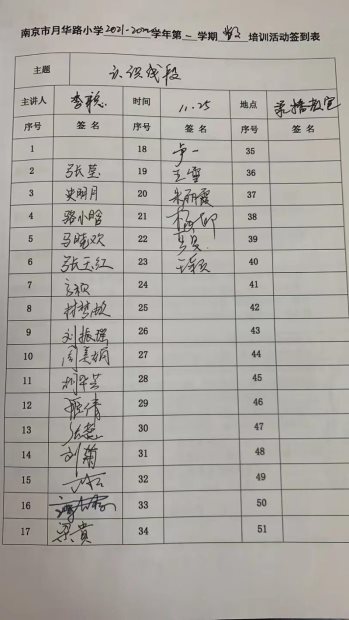 南京市月华路小学2021-2022学年第一学期 数学 培训活动签到表
主题 认识线段
主讲人 李聪 时间 11.25 地点 录播教室
序号 签名 序号 签名 序号 签名
1 18 卢一 35
2 张莹 19 王雪 36
3 史明月 20 朱丽霞 37
4 骆小晗 21 38
5 马晓欢 22 39
6 张玉红 23 王颖 40
7 24 41
8 25 42
9 刘振瑶 26 43
10 周美娟 27 44
11 28 45
12 29 46
13 30 47
14 刘菊 31 48
15 32 49
16 33 50
17 梁贵 34 51